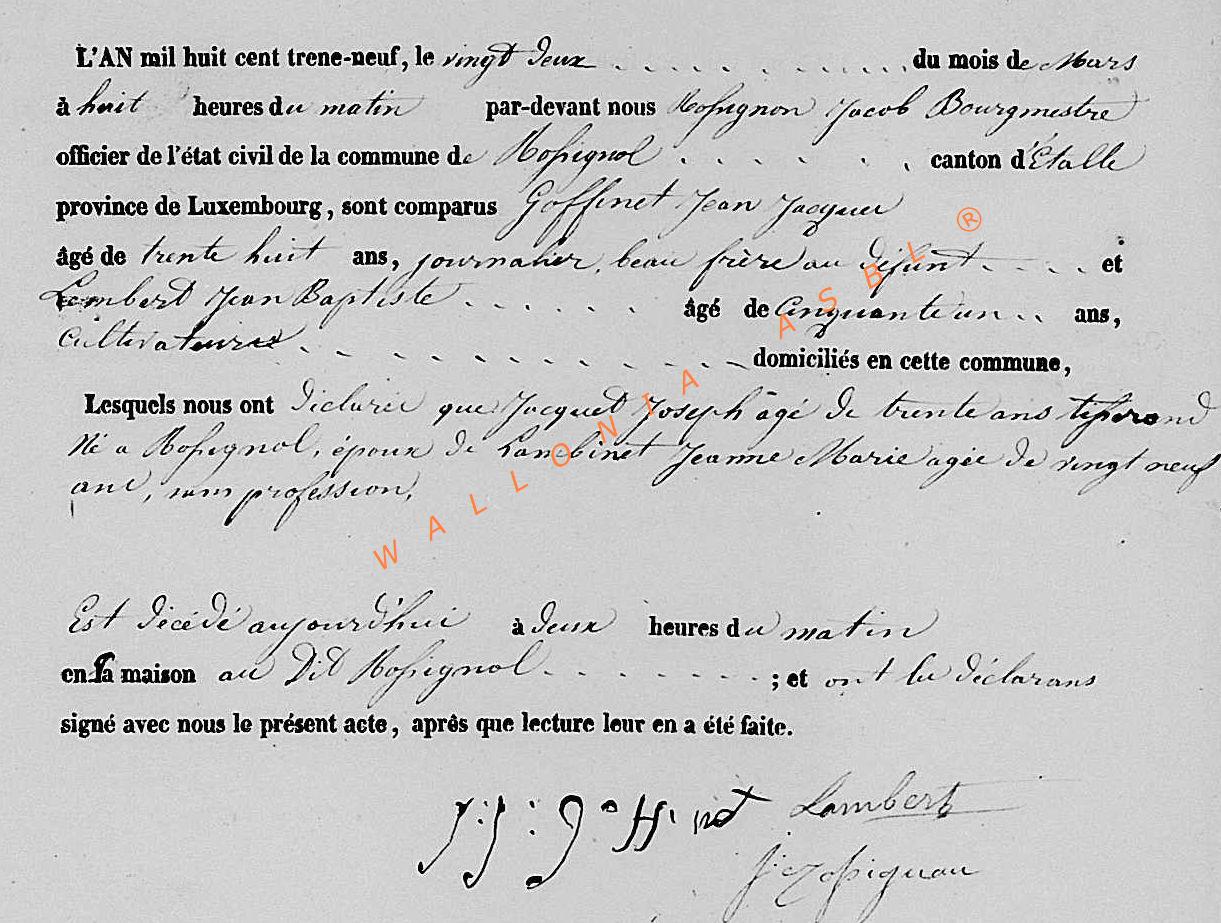 L'AN mil huit cent trene-neuf, le vingt deux . . . . . . . . . . du mois de Mars
à huit heures du matin par-devant nous Rossignon Jacob Bourgmestre
officier de l'état civil de la commune de Rossignol . . . . . . canton d'Etalle
province de Luxembourg, sont comparus Goffinet Jean Jacques
âgé de trente huit ans, journalier, beau frère au défunt . . . . et
Lambert Jean Baptiste . . . . . . âgé de Cinquante un . . ans,
cultivateurs . . . . . . . . . . . . domiciliés en cette commune,
Lesquels nous ont déclarée que Jacquet Joseph âgé de trente ans tisserand
Né a Rossignol, époux de Lambinet Jeanne Marie agée de vingt neuf
ans, sans profession,
Est décédé aujourd'hui à deux heures du matin
en la maison au Dit Rossignol . . . . . . . . ; et ont les déclarans
signé avec nous le présent acte, après que lecture leur en a été faite.
J: J: Goffinet Lambert
J: Rossignon
WALLONIA ASBL ®